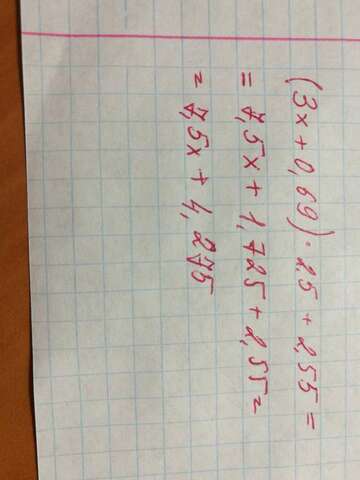 (3x+0,69)·2,5+2,55=
=7,5x+1,725+2,55=
=7,5x+4,275